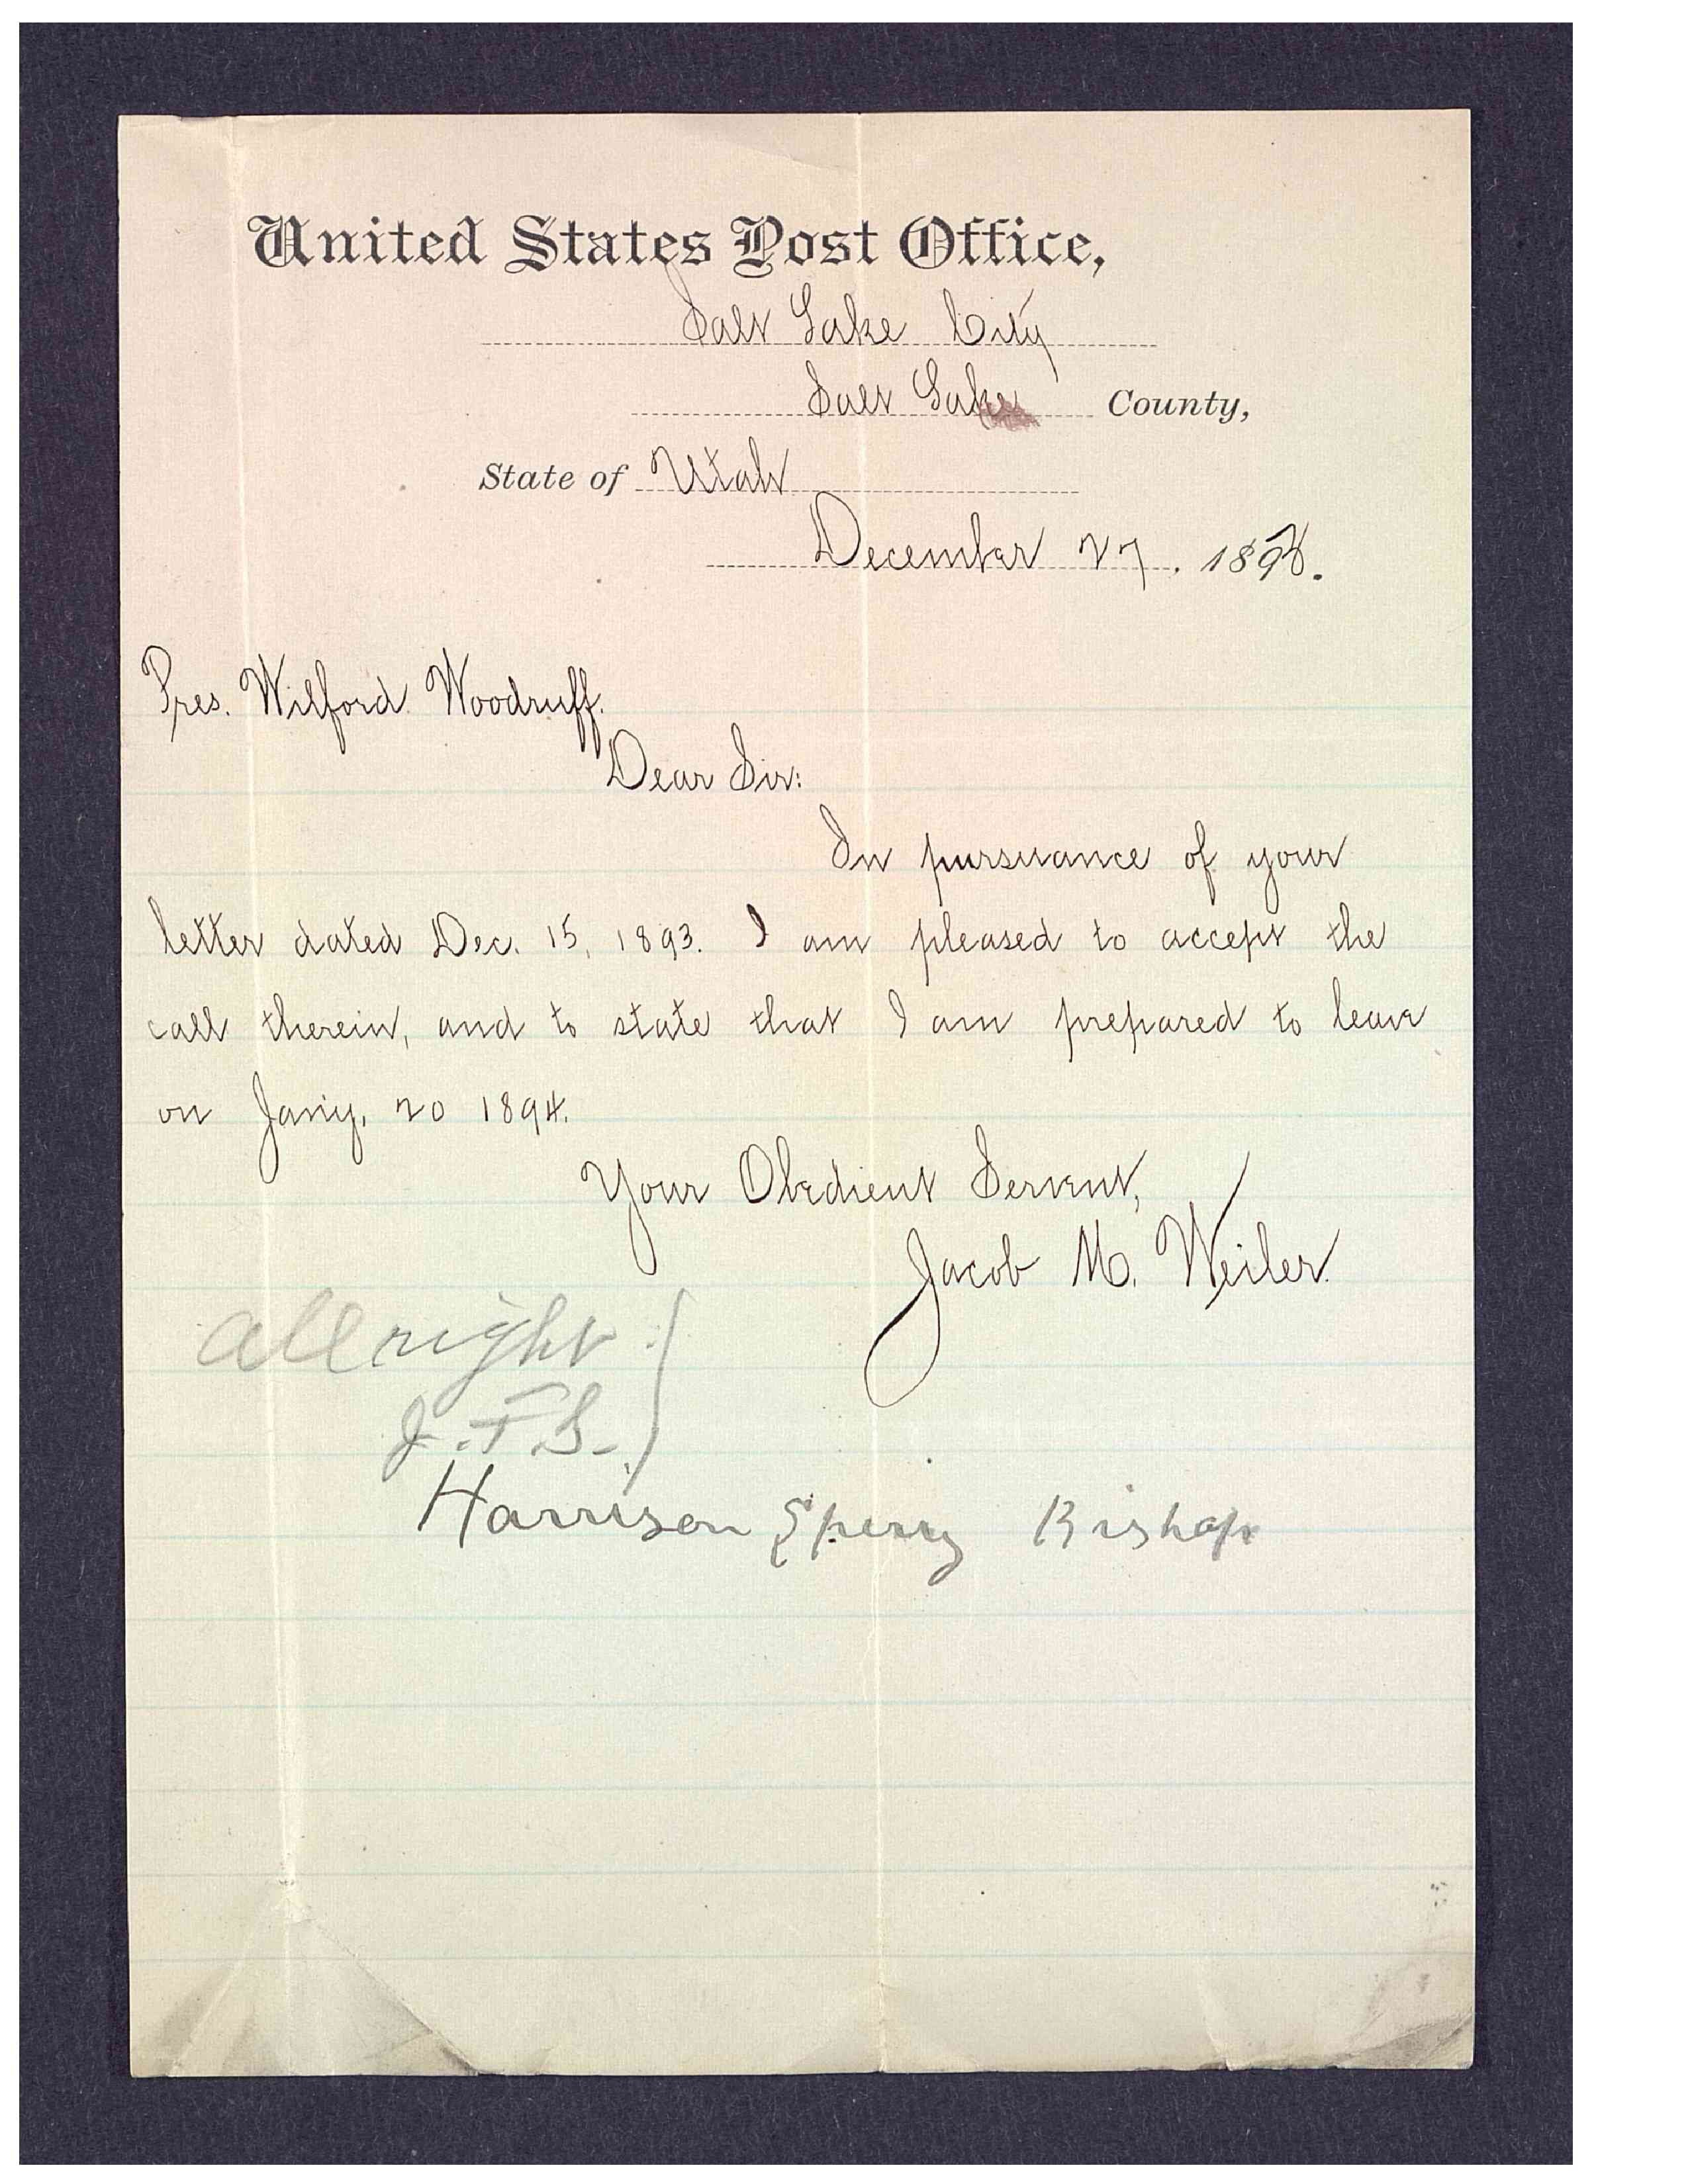 United States Post Office,
Salt Lake City
Salt Lake County,
State of Utah
December 27, 1893.
Pres. Wilford Woodruff.
Dear Sir:
In pursuance of your
letter dated Dec. 15, 1893. I am pleased to accept the
call therein, and to state that I am prepared to leave
on Jan'y, 20 1894.
Your Obedient Servent,
Jacob M. Weiler.
All right
J. F. S.
Harrison Sperry Bishop